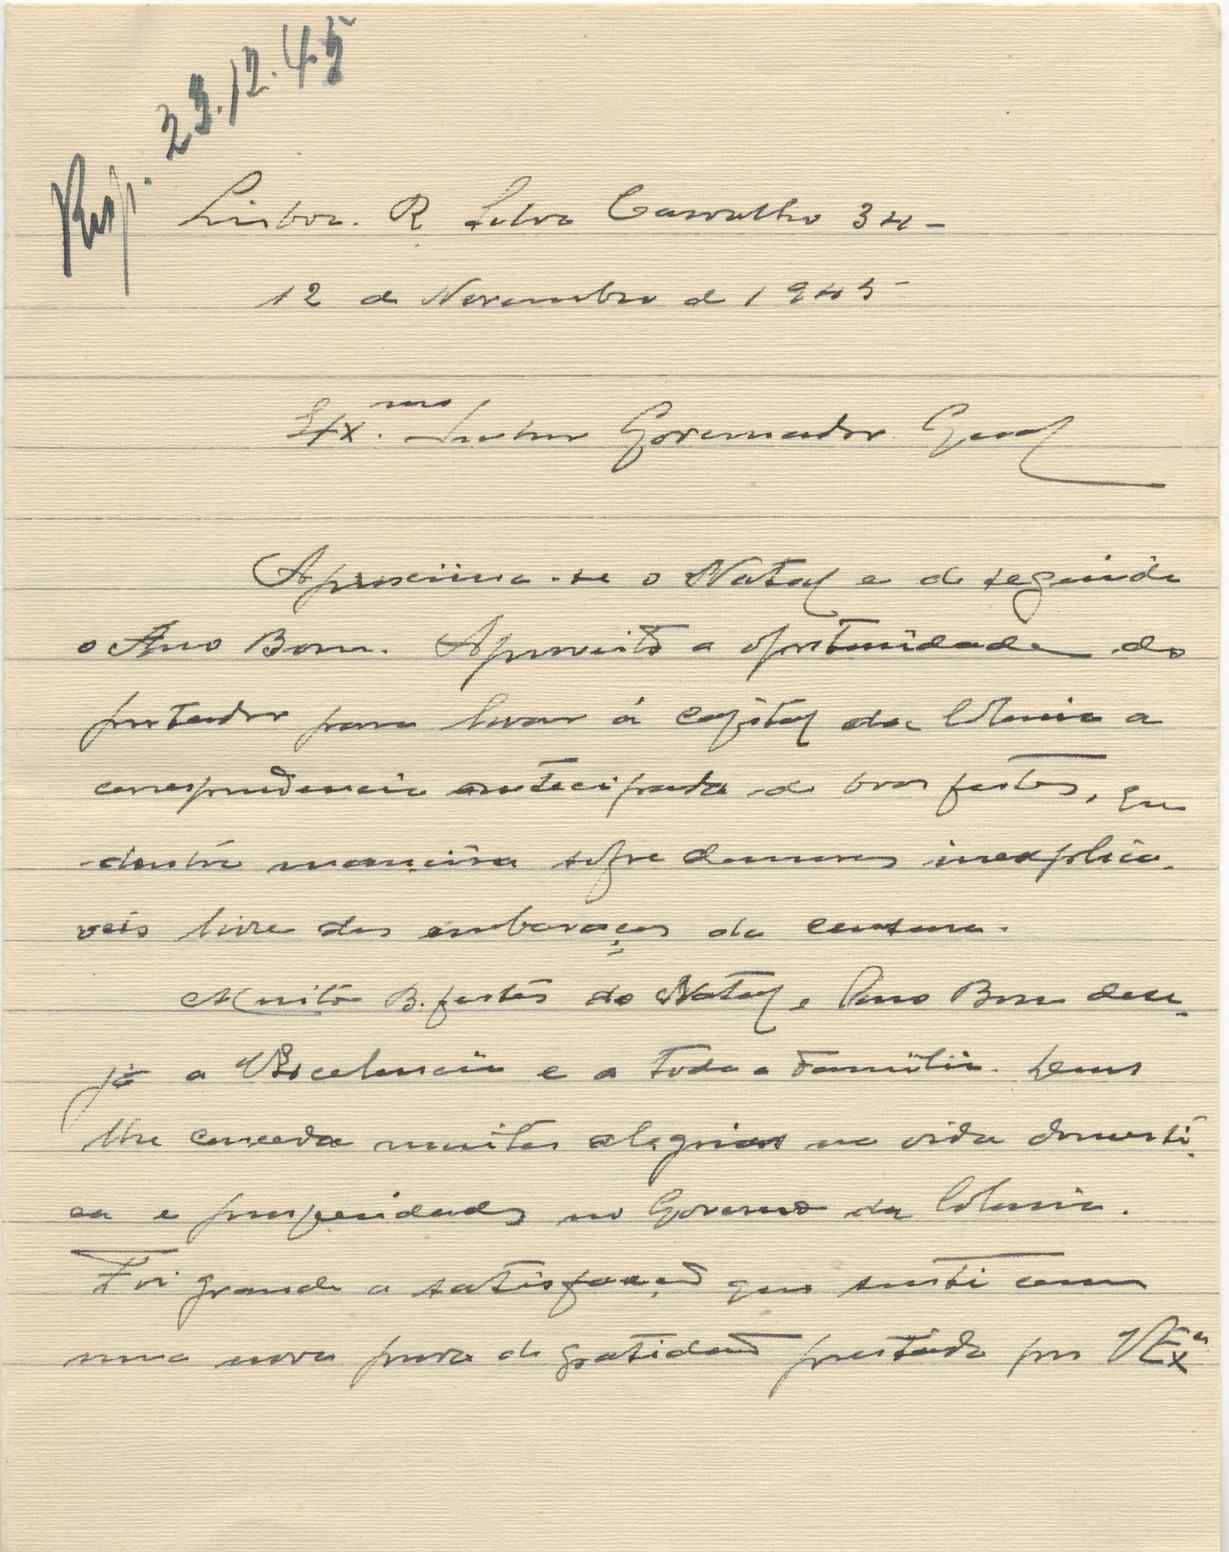 Resp. 23.12.45
Lisboa. R Silva Carvalho 34 -
12 de Novembro de 1945
Ex.mo Senhor Governador Geral
Aproxima-se o Natal e de seguida
o Ano Bom. Aproveito a oportunidade do
portador para levar á capital da Colonia a
correspondencia antecipada de boas festas, que
doutra maneira sofre demoras inexplica-
veis livre dos embaraços da censura.
Muito B. festas do Natal e Ano Bom dese-
jo a VExcelencia e a toda a Familia. Deus
lhe conceda muitas alegrias na vida domesti-
ca e prosperidades no Governo da Colonia.
Foi grande a satisfação que senti com
uma nova prova de gratidão prestada por VExa